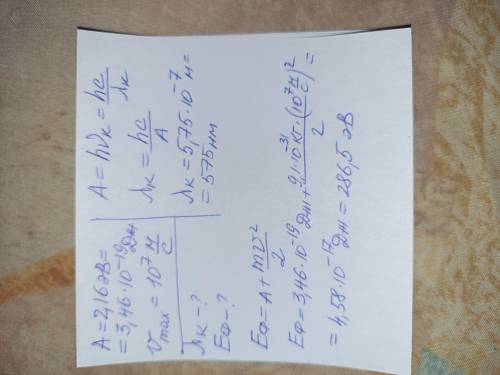 A = 2,16 эВ =
= 3,46·10⁻¹⁹ Дж
v_max = 10⁷ м/с
λк - ?
Eф - ?
A = hνк = hc/λк
λк = hc/A
λк = 5,75·10⁻⁷ м =
= 575 нм
Eф = A + mv²/2
Eф = 3,46·10⁻¹⁹ Дж + 9,1·10⁻³¹ кг·(10⁷ м/с)²/2 =
= 4,58·10⁻¹⁷ Дж = 286,5 эВ